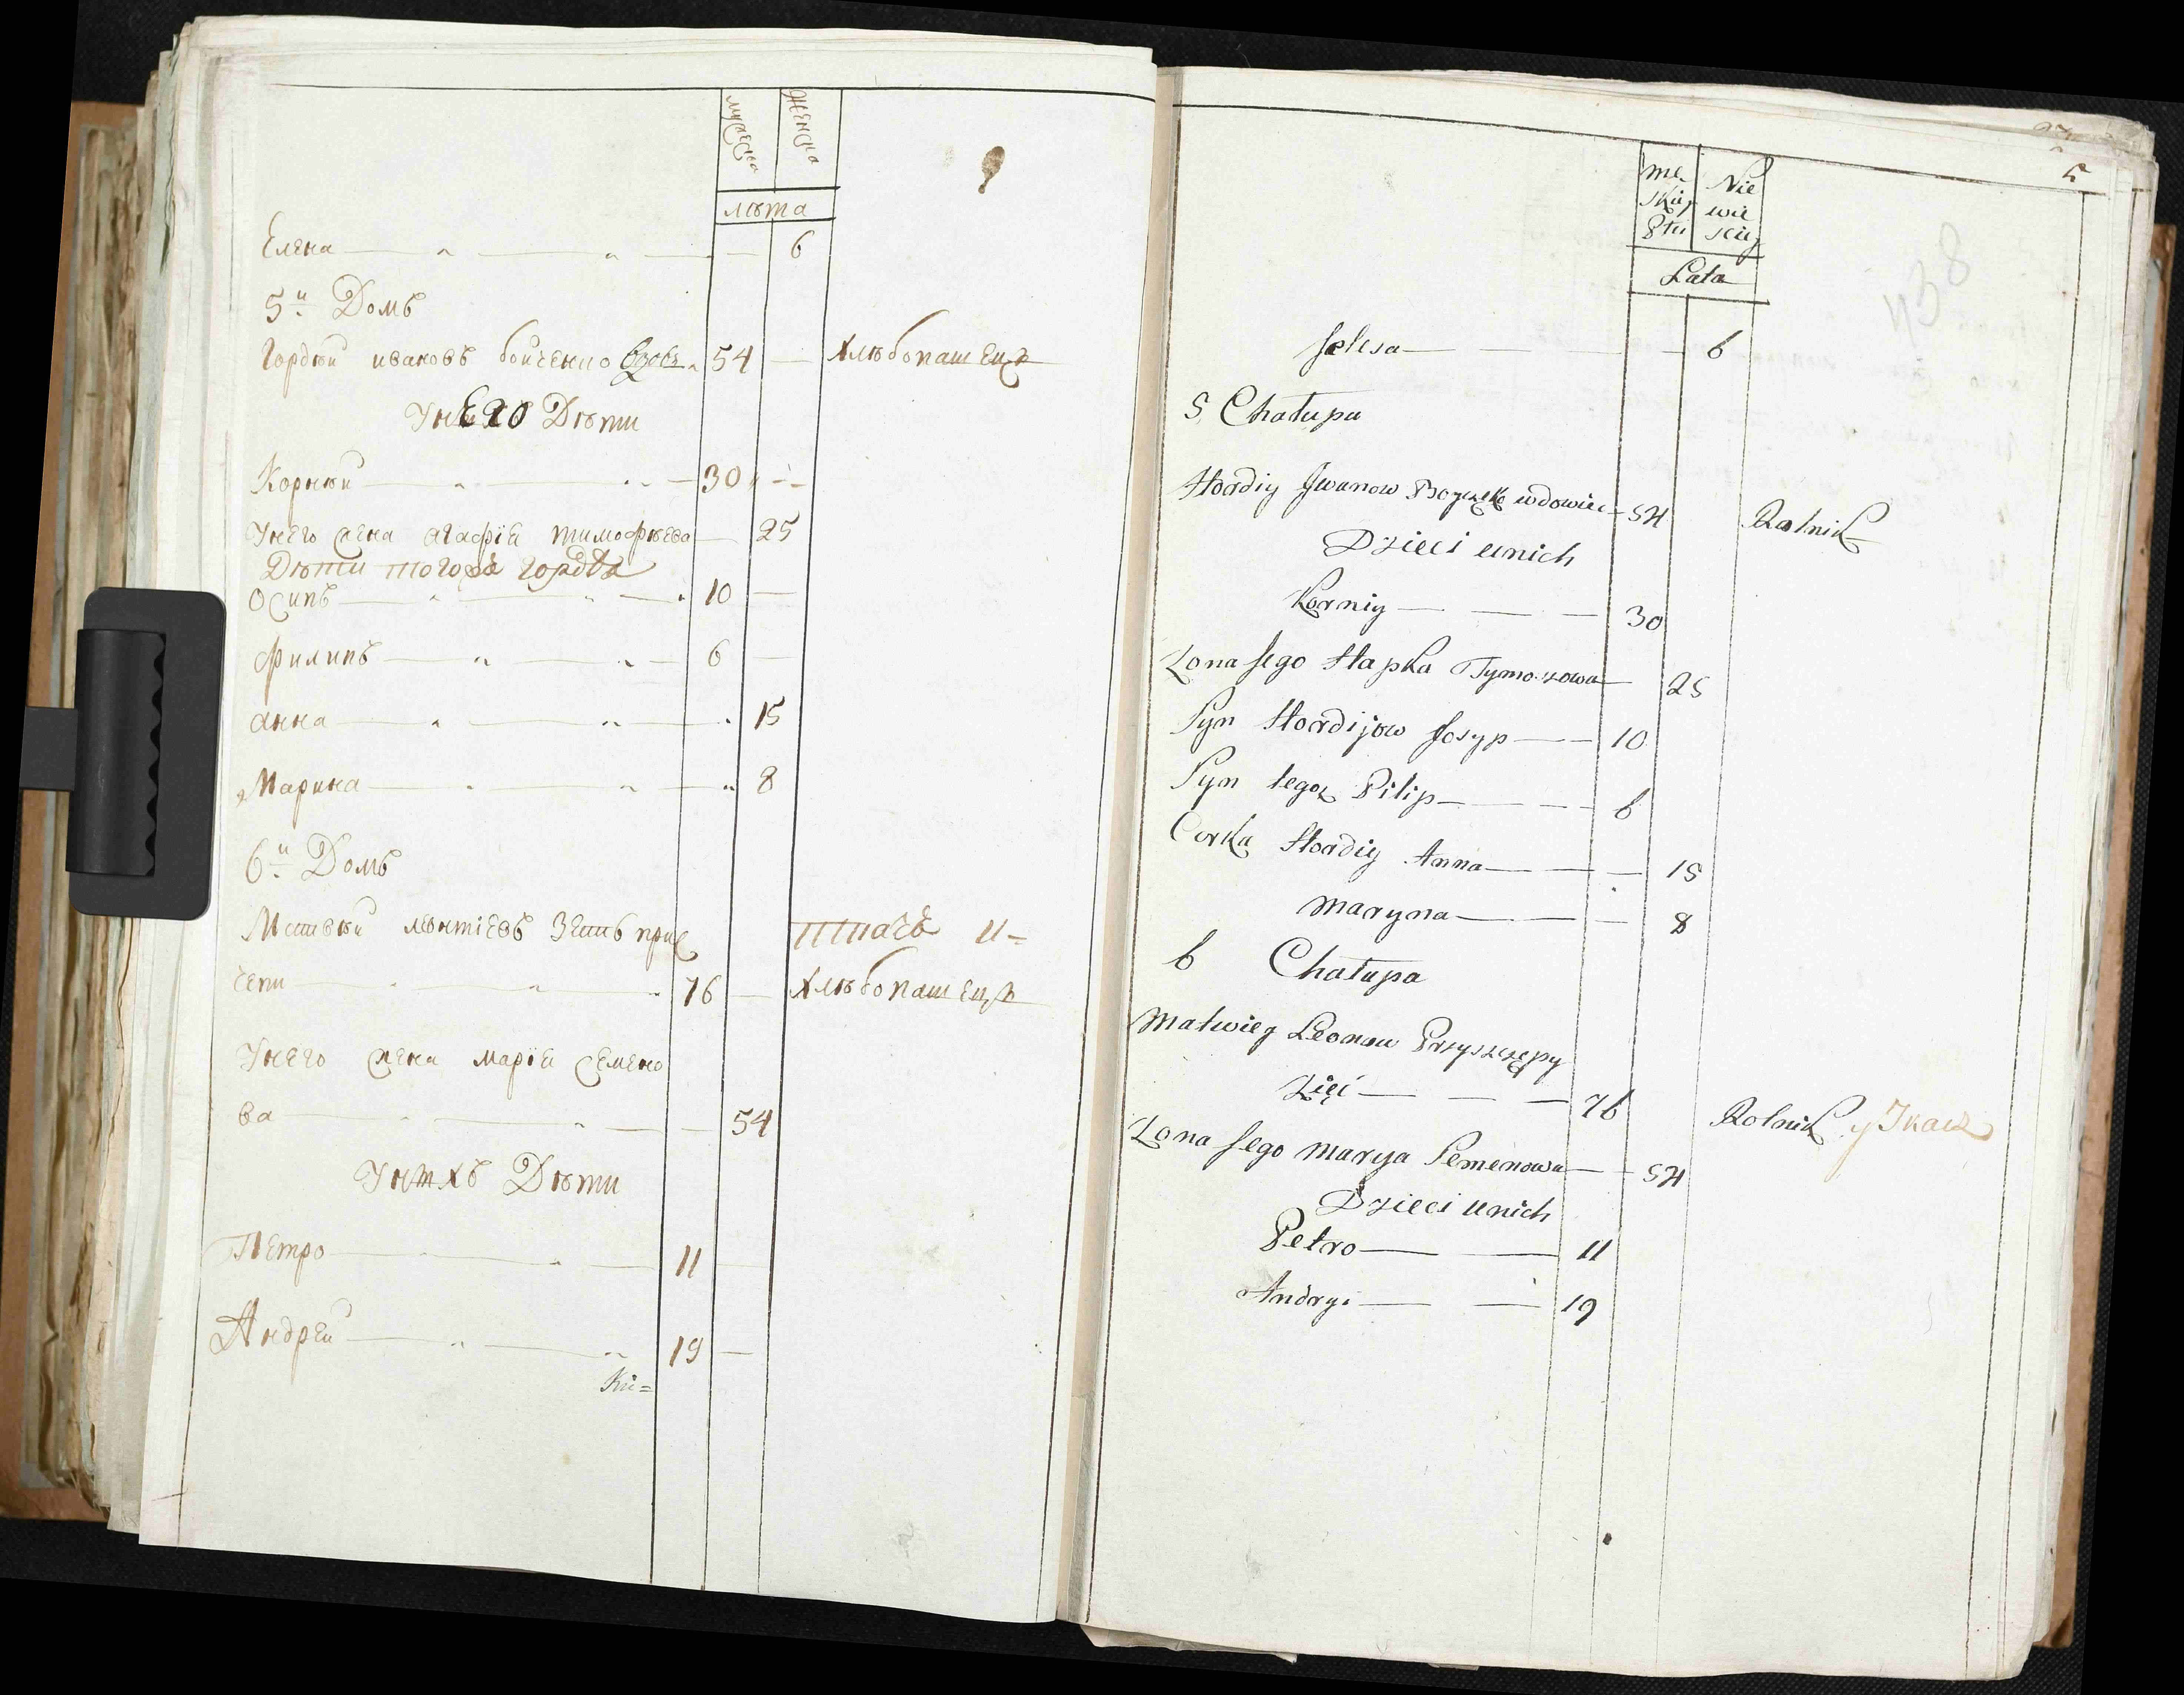 мужеска
женска
лѣта
Елена 6
5й Домъ
Гордѣй ивановъ бойченко вдовъ 54 Хлѣбопашецъ
Унего Дѣти
Корнѣй 30
Унего жена агафіа тимофѣева 25
Дѣти тогожъ гордѣа
Осипъ 10
Филипъ 6
анна 15
Марина 8
6й Домъ
Матвѣй лѣонтіевъ Зять прис ткачъ и=
чепи 76 Хлѣбопашецъ
Унего жена маріа семено
ва 54
Унихъ Дѣти
Петро 11
Андрей 19
Ки=
5
438
Nie
wie
Lata
Jelesa 6
5 Chałupa
Hordiy Jwanow Boyczęko wdowiec 54 Rolnik
Dzieci unich
Korniy 30
Zona Jego Hapka Tymoszowa 25
Syn Hordijow Josyp 10
Syn tegoz Pilip 6
Corka Hordiy Anna 15
Maryna 8
6 Chałupa
Matwiey Leonow Przyszczepy
Zięć 76 Rolnik y Tkacz
Zona Jego Marya Semenowa 54
Dzieci unich
Petro 11
Andryi 19